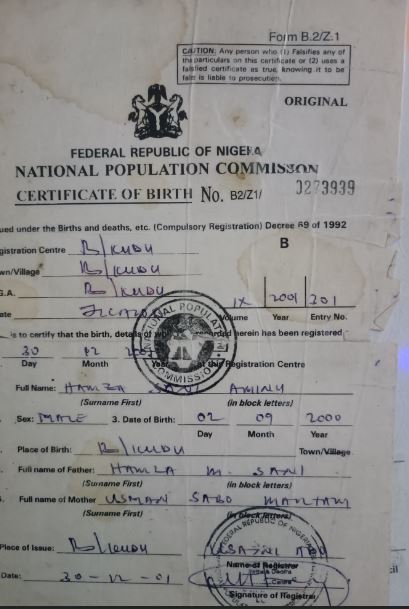 Form B.2/Z.1
CAUTION: Any person who (1) Falsifies any of the particulars on this certificate or (2) uses a falsified certificate as true, knowing it to be false is liable to prosecution.
ORIGINAL
FEDERAL REPUBLIC OF NIGERIA
NATIONAL POPULATION COMMISSION
CERTIFICATE OF BIRTH No. B2/Z1/ 0273939
ued under the Births and deaths, etc. (Compulsory Registration) Decree 69 of 1992
gistration Centre B/KUDU B
wn/Village B/KUDU
G.A. B/KUDU
ate IX 2001 301
Volume Year Entry No.
is to certify that the birth, details of which recorded herein has been registered
30 12 2001
Day Month Year this Registration Centre
Full Name: HAMZA SANI AMINU
(Surname First) (in block letters)
Sex: MALE 3. Date of Birth: 02 09 2000
Day Month Year
Place of Birth: B/KUDU Town/Village
Full name of Father: HAMZA M. SANI
(Surname First) (in block letters)
Full name of Mother USMAN SABO MARYAM
(Surname First) (in block letters)
Place of Issue: B/KUDU
Name of Registrar
Date: 30-12-01
Signature of Registrar